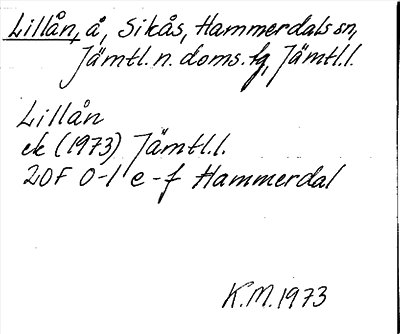 Lillån, å, Sikås, Hammerdals sn,
Jämtl. n. doms. fg, Jämtl. l.
Lillån
ek (1973) Jämtl. l.
20F 0-1 e-f Hammerdal
K.M. 1973